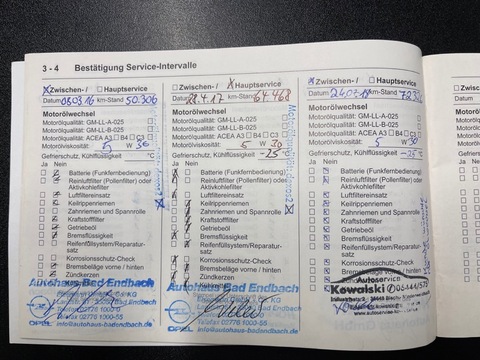 3 - 4 Bestätigung Service-Intervalle
Zwischen- / Hauptservice
Datum 08.03.16 km-Stand 50.306
Motorölwechsel
Motorölqualität: GM-LL-A-025
Motorölqualität: GM-LL-B-025
Motorölqualität: ACEA A3 B4 C3
Motorölviskosität: 5 W 30
Gefrierschutz, Kühlflüssigkeit °C
Ja Nein
Batterie (Funkfernbedienung)
Reinluftfilter (Pollenfilter) oder
Aktivkohlefilter
Luftfiltereinsatz
Keilrippenriemen
Zahnriemen und Spannrolle
Kraftstofffilter
Getriebeöl
Bremsflüssigkeit
Reifenfüllsystem/Reparatur-
satz
Korrosionsschutz-Check
Bremsbeläge vorne / hinten
Zündkerzen
Autohaus Bad Endbach
OPEL
Telefon 02776 1000-0
Telefax 02776 1000-55
info@autohaus-badendbach.de
Zwischen- / Hauptservice
Datum 28.4.17 km-Stand 64.468
Motorölwechsel
Motorölqualität: GM-LL-A-025
Motorölqualität: GM-LL-B-025
Motorölqualität: ACEA A3 B4 C3
Motorölviskosität: 5 W 30
Gefrierschutz, Kühlflüssigkeit -25 °C
Ja Nein
Batterie (Funkfernbedienung)
Reinluftfilter (Pollenfilter) oder
Aktivkohlefilter
Luftfiltereinsatz
Keilrippenriemen
Zahnriemen und Spannrolle
Kraftstofffilter
Getriebeöl
Bremsflüssigkeit
Reifenfüllsystem/Reparatur-
satz
Korrosionsschutz-Check
Bremsbeläge vorne / hinten
Zündkerzen
Autohaus Bad Endbach
OPEL
Telefon 02776 1000-0
Telefax 02776 1000-55
info@autohaus-badendbach.de
Zwischen- / Hauptservice
Datum 24.07.18 km-Stand
Motorölwechsel
Motorölqualität: GM-LL-A-025
Motorölqualität: GM-LL-B-025
Motorölqualität: ACEA A3 B4 C3
Motorölviskosität: 5 W 30
Gefrierschutz, Kühlflüssigkeit -25 °C
Ja Nein
Batterie (Funkfernbedienung)
Reinluftfilter (Pollenfilter) oder
Aktivkohlefilter
Luftfiltereinsatz
Keilrippenriemen
Zahnriemen und Spannrolle
Kraftstofffilter
Getriebeöl
Bremsflüssigkeit
Reifenfüllsystem/Reparatur-
satz
Korrosionsschutz-Check
Bremsbeläge vorne / hinten
Zündkerzen
Autoservice
Kowalski